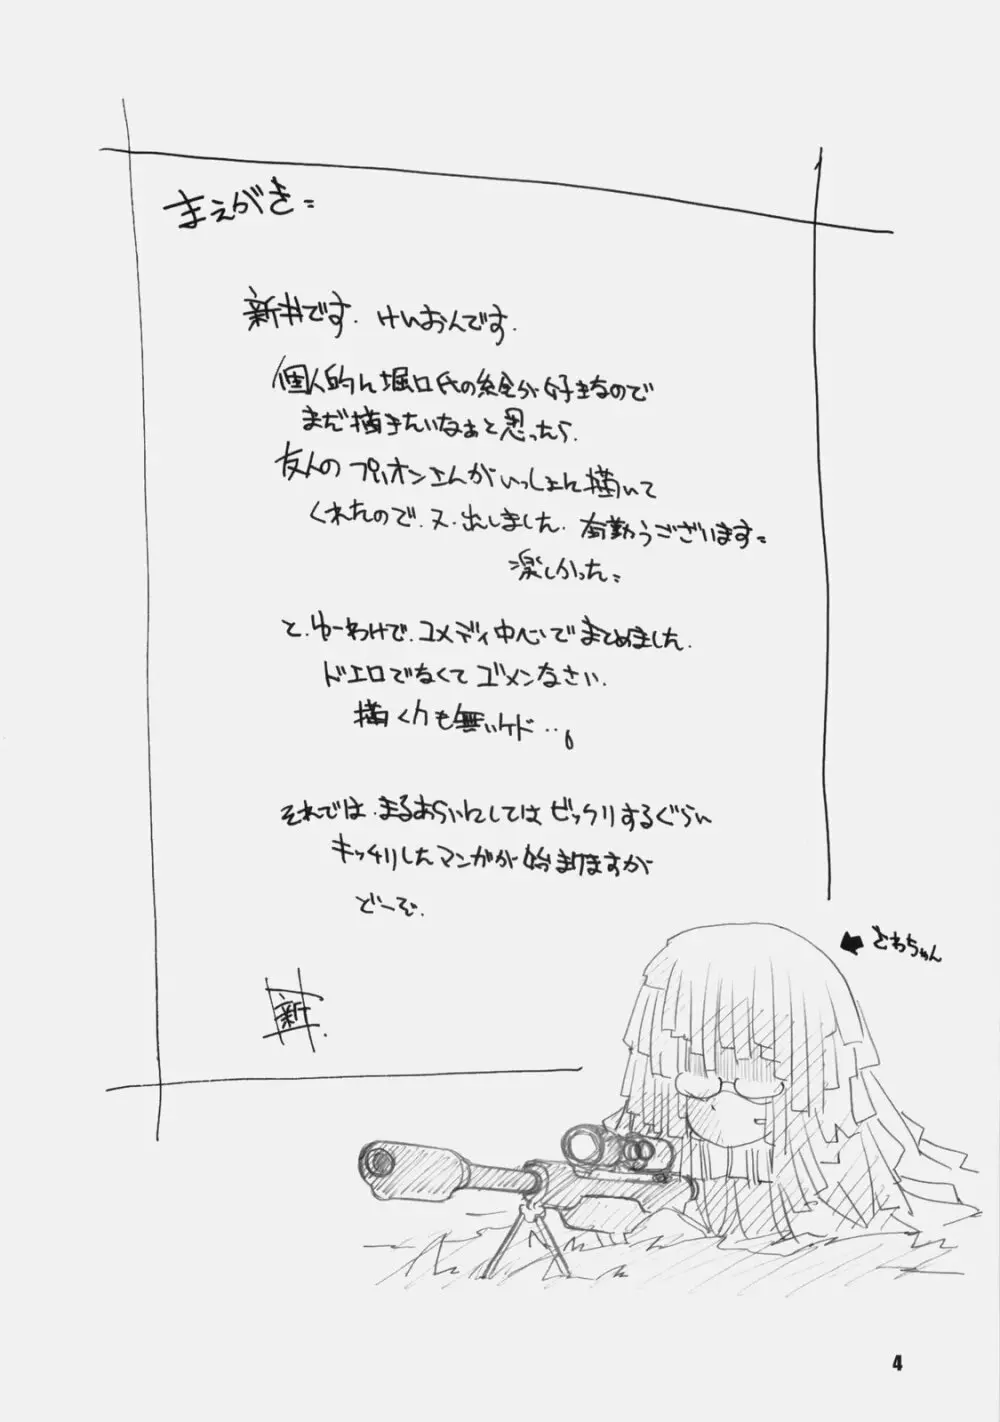 まえがき=
新井です. けいおんです.
個人的に堀口氏の絵が好きなので
まだ描きたいなぁと思ったら.
友人のプリオンさんがいっしょに描いて
くれたので.又.出しました.有難うございます=
楽しかった=
と.ゆーわけで.コメディ中心でまとめました.
ドエロでなくてゴメンなさい.
描く力も無いケド…。
それでは.まるあらいにしてはビックリするぐらい
キッチリしたマンガが始まりますが
どーぞ.
新.
さわちゃん
4